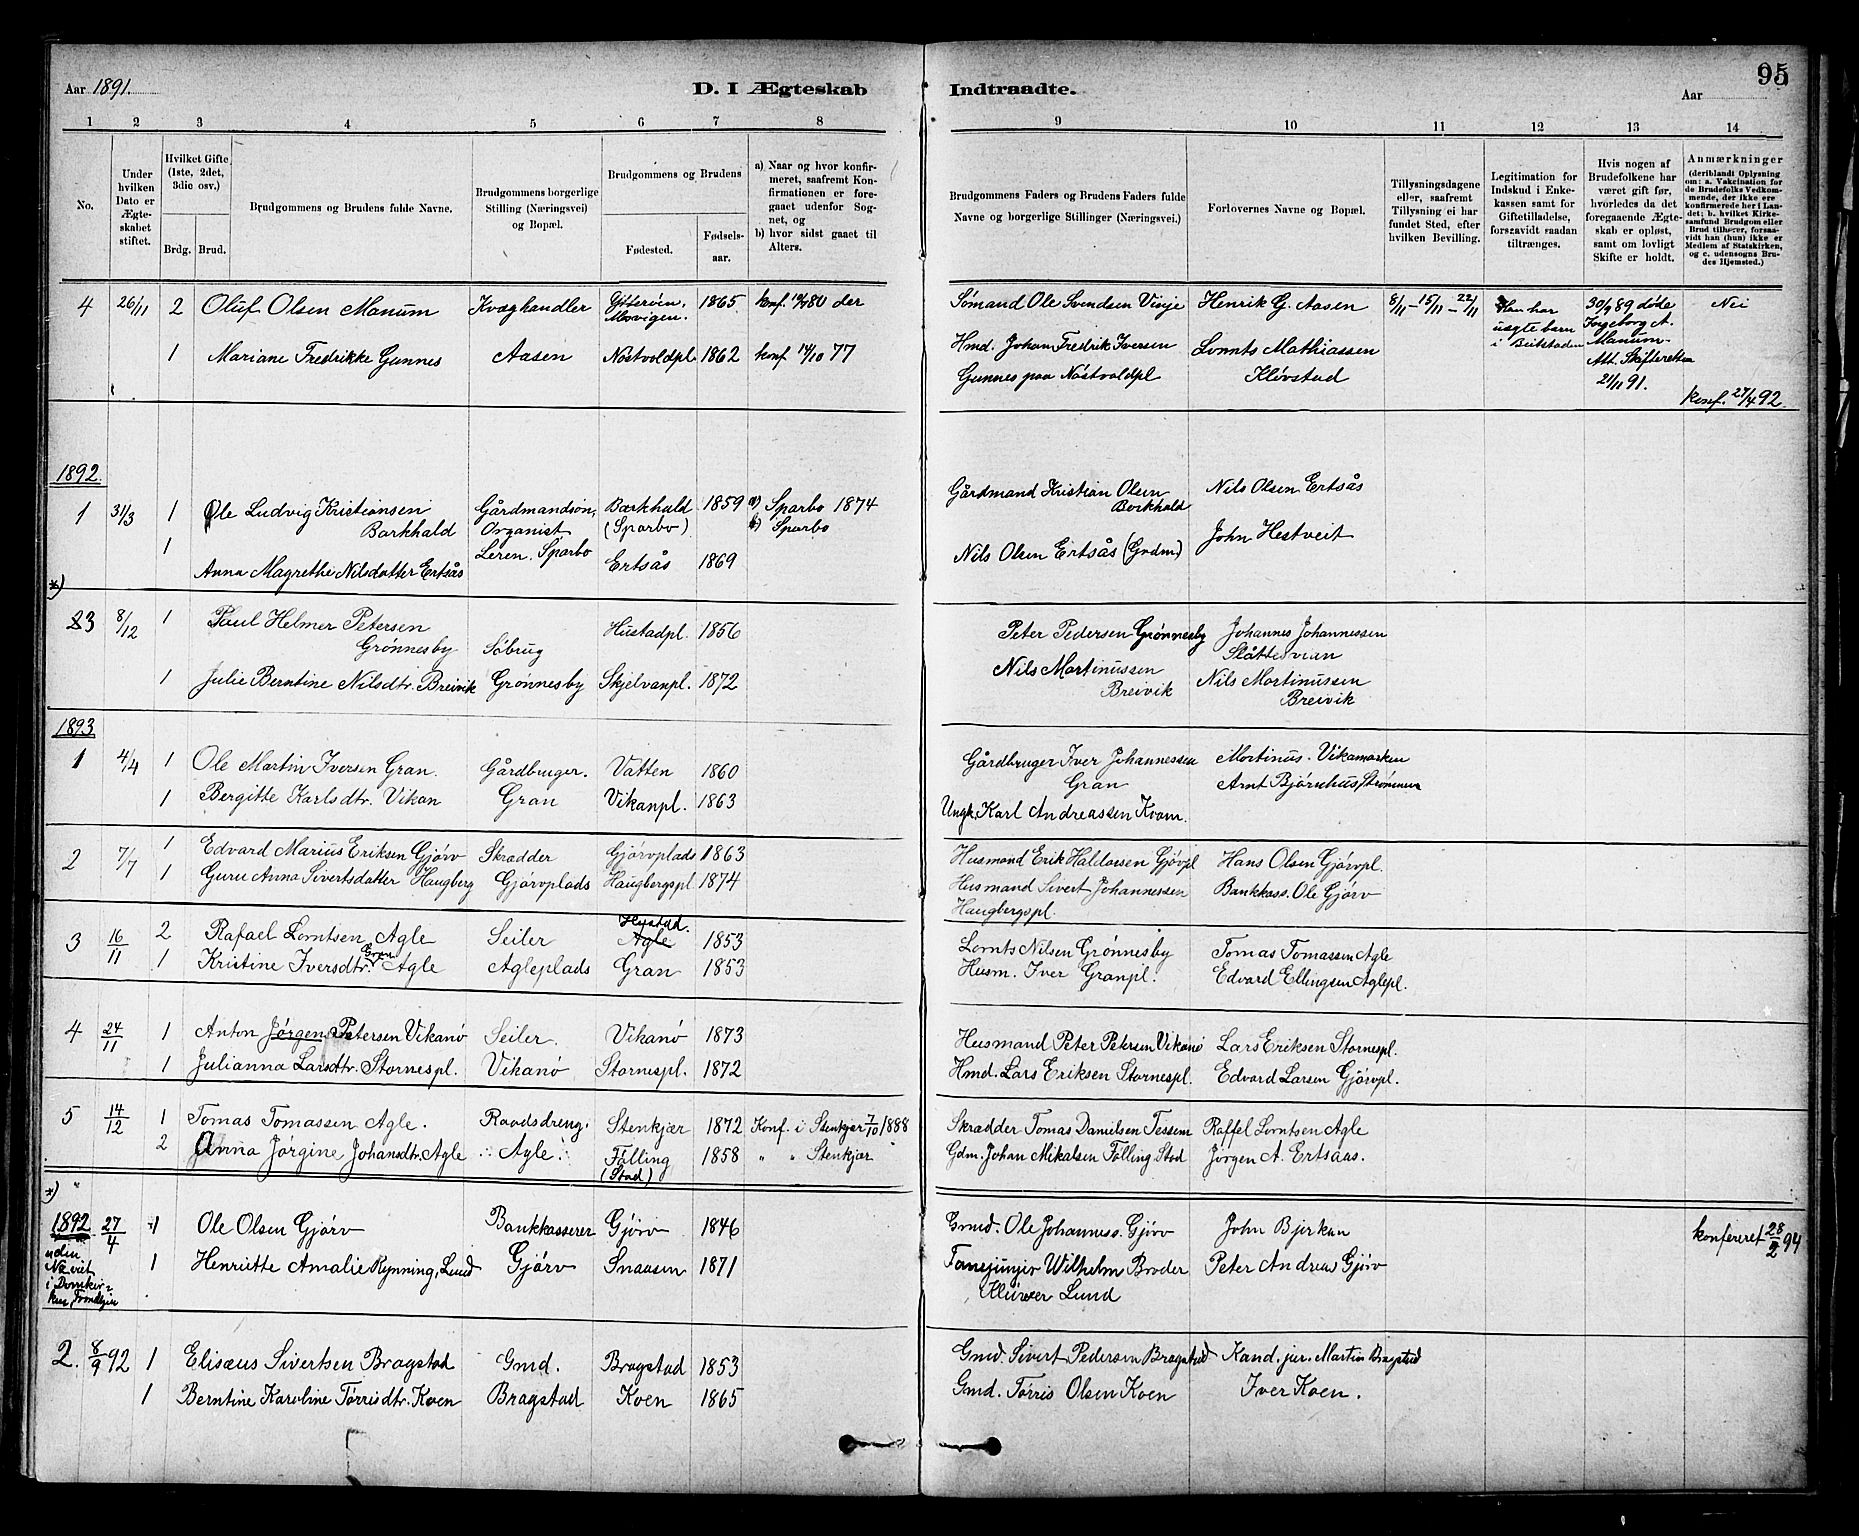 Aar 1891.
D. I Ægteskab Indtraadte.
95
Aar
1 2 3 4 5 6 7 8 9 10 11 12 13 14
No.
Under hvilken Dato er Ægteskabet stiftet.
Hvilket Gifte (1ste, 2det, 3die osv.)
Brdg. Brud.
Brudgommens og Brudens fulde Navne.
Brudgommens borgerlige Stilling (Næringsvei) og Bopæl.
Brudgommens og Brudens
Fødested.
Fødselsaar.
a) Naar og hvor konfirmeret, saafremt Konfirmationen er foregaaet udenfor Sognet, og
b) hvor sidst gaaet til Alters.
Brudgommens Faders og Brudens Faders fulde Navne og borgerlige Stillinger (Næringsvei.)
Forlovernes Navne og Bopæl.
Tillysningsdagene eller, saafremt Tillysning ei har fundet Sted, efter hvilken Bevilling.
Legitimation for Indskud i Enkekassen samt for Giftetilladelse, forsaavidt saadan tiltrænges.
Hvis nogen af Brudefolkene har været gift før, hvorledes da det foregaaende Ægteskab er opløst, samt om lovligt Skifte er holdt.
Anmærkninger (deriblandt Oplysning om: a. Vakcination for de Brudefolks Vedkommende, der ikke ere konfirmerede her i Landet; b. hvilket Kirkesamfund Brudgom eller Brud tilhører, forsaavidt han (hun) ikke er Medlem af Statskirken, og c. udensogns Brudes Hjemsted.)
4 26/11 2 Oluf Olsen Manum Kvæghandler 1865 konf. 80 der Sømand Ole Svendsen Vinje Henrik G. Aasen 8/11 – 15/11 – 22/11 Han har uægte barn i Beitstaden 30/9 89 døde Ingeborg A. Manum. Att. Skifteretten 21/11 91. Nei
1 Mariane Fredrikke Gunnes Aasen Nøstvoldpl. 1862 konf 14/10 77 Hmd. Johan Fredrik Iversen Gunnes paa Nøstvoldpl Lornts Mathiassen Kløvstad
konf. 27/4 92.
1892.
1 31/3 1 Ole Ludvig Kristiansen Barkhald Gårdmandsøn, Organist Barkhald (Sparbo) 1859 a) Sparbo 1874 b) Sparbo Gårdmand Kristian Olsen Barkhald Nils Olsen Ertsås
1 Anna Magrethe Nilsdatter Ertsås Leren. Sparbo Ertsås 1869 Nils Olsen Ertsås (Grdm) John Hestveit
*)
3 8/12 1 Paul Helmer Petersen Grønnesby Søbrug Hustadpl. 1856 Peter Pedersen Grønnesby Johannes Johannessen
1 Julie Berntine Nilsdtr. Breivik Grønnesby Skjelvanpl. 1872 Nils Martinussen Breivik Nils Martinussen Breivik
1893
1 4/4 1 Ole Martin Iversen Gran. Gårdbruger. Vatten 1860 Gårdbruger Iver Johannessen Gran Martinus. Vikamarken
1 Bergitte Karlsdtr. Vikan Gran Vikanpl. 1863 Ungk. Karl Andreassen Kvam. Arnt Bjørnhus, Strømmen
2 7/7 1 Edvard Marius Eriksen Gjørv Skrædder Gjørvplads 1863 Husmand Erik Haldorsen Gjøvpl Hans Olsen Gjørvpl.
1 Guru Anna Sivertsdatter Haugberg Gjørvplads Haugbergspl. 1874 Husmand Sivert Johannessen Haugbergspl. Bankkass. Ole Gjørv
3 16/11 2 Rafael Lorntsen Agle Seiler Agle Hystad. 1853 Lornts Nilsen Grønnesby Tomas Tomassen Agle
1 Kristine Iversdtr. Gran Agle Agleplads Gran 1853 Husm. Iver Granpl. Edvard Ellingsen Aglepl.
4 24/11 1 Anton Jørgen Petersen Vikanø Seiler. Vikanø 1873 Husmand Peter Petersen Vikanø Lars Eriksen Stornespl.
1 Julianna Larsdtr. Stornespl. Vikanø Stornespl. 1872 Hmd. Lars Eriksen Stornespl. Edvard Larsen Gjørvpl.
5 14/12 1 Tomas Tomassen Agle. Raadsdreng: Stenkjær 1872 Konf. i Stenkjær 7/10 1888 Skrædder Tomas Danielsen Tessem Raffel Lorntsen Agle
2 Anna Jørgine Johansdtr. Agle Agle Følling (Stod) 1858 " " Stenkjær Gdm. Johan Mikalsen Følling Stod Jørgen A. Ertsaas.
*)
1892 27/4 1 Ole Olsen Gjørv Bankkasserer Gjørv 1846 Gmd. Ole Johanness. Gjørv John Bjerkan konfereret 28/2 94
uden
i Domkirken, Trondhjem
1 Henriette Amalie Rynning Lund Gjørv Snaasen 1871 Fanejunjer Wilhelm Broder Klüwer Lund Peter Andreas Gjørv
2. 8/9 92 1 Elisæus Sivertsen Bragstad Gmd. Bragstad 1853 Gmd. Sivert Pedersen Bragstad Kand. jur. Martin Bragstad
1 Berntine Karoline Tørrisdtr. Koen Bragstad Koen 1865 Gmd. Tørris Olsen Koen Iver Koen.